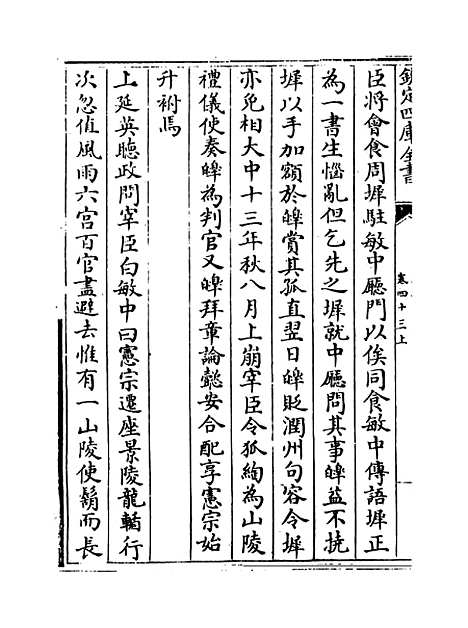 欽定四庫全書
卷四十三上
臣將會食周墀駐敏中㕔門以俟同食敏中傳語墀正
為一書生惱亂但乞先之墀就中㕔問其事皥益不撓
墀以手加額於皥賞其孤直翌日皥貶潤州句容令墀
亦免相大中十三年秋八月上崩宰臣令狐綯為山陵
禮儀使奏皥為判官又皥拜章論懿安合配享憲宗始
升祔焉
上延英聽政問宰臣白敏中曰憲宗遷座景陵龍輴行
次忽值風雨六宫百官盡避去惟有一山陵使鬍而長